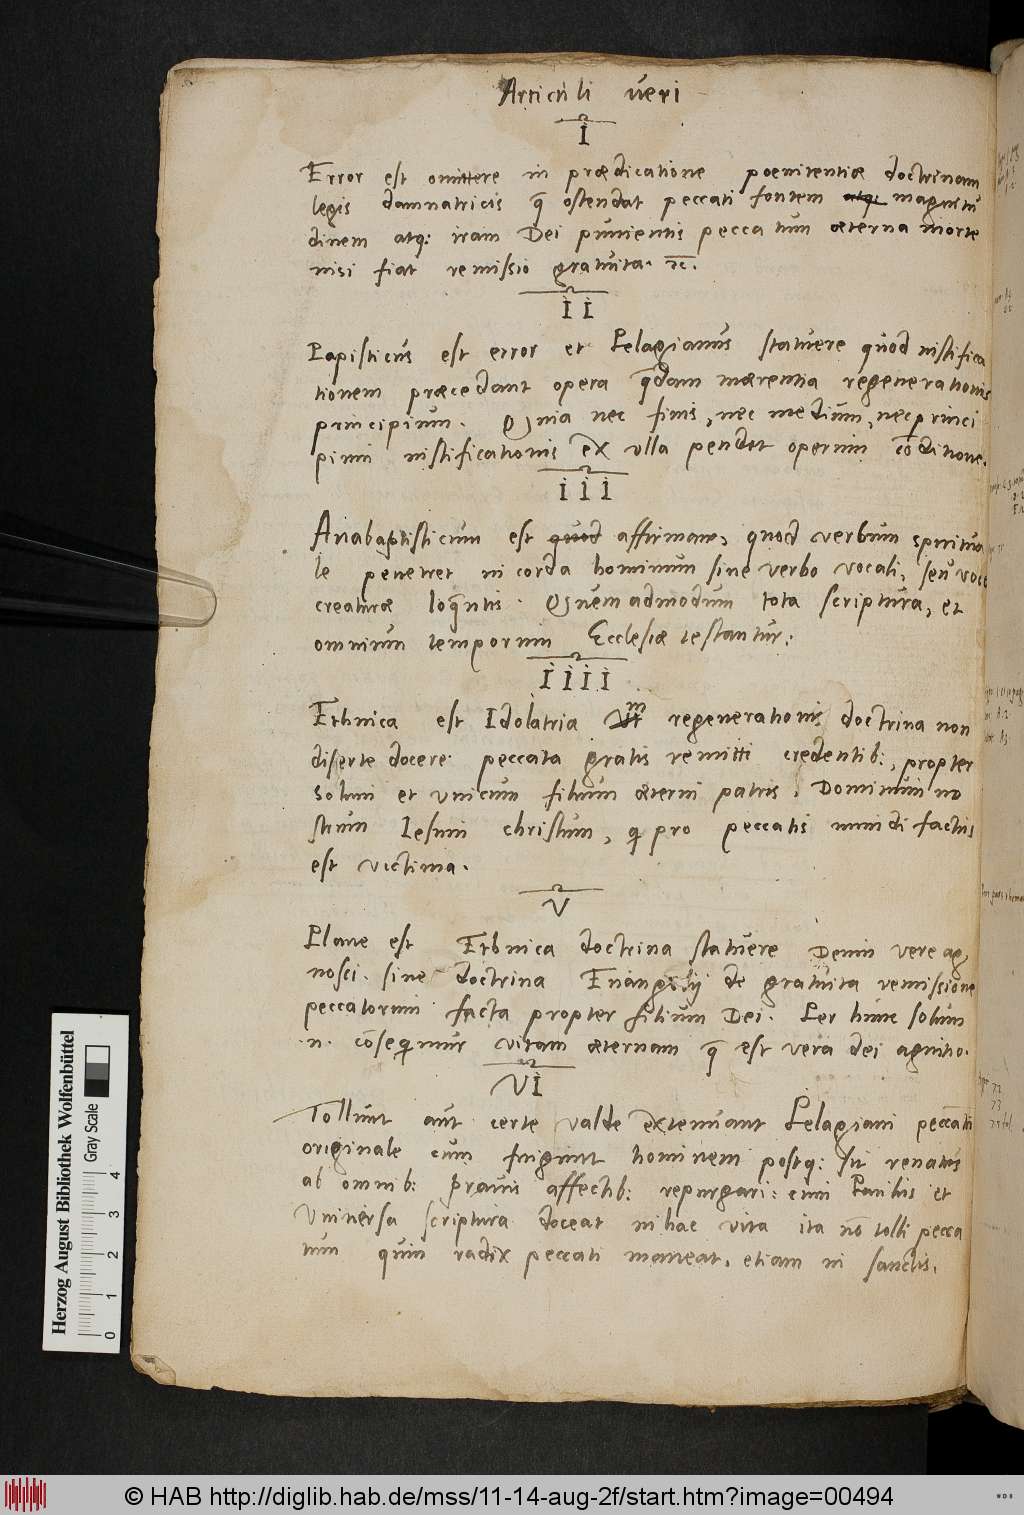 Articuli veri
I
Error est omittere in prædicatione poenitentiæ doctrinam
legis damnatricis q̃ ostendat peccati fontem atq: magnitu
dinem atq: iram Dei punientis peccatum æterna morte
nisi fiat remissio gratuita. ꝛc.
II
Papisticus est error et Pelagianus statuere quod iustifica
tionem præcedant opera q̃dam mærentia regenerationis
principium. Quia nec finis, nec medium, nec princi
pium iustificationis ex ulla pendet operum cõditione.
III
Anabaptisticum est quod affirmare, quod verbum spiritua
le penetret in corda hominum sine verbo vocali, seu voce
creaturæ loq̃ntis. Quemadmodum tota scriptura, et
omnium temporum Ecclesiæ testantur:
IIII
Ethnica est Idolatria regenerationis doctrina non
diserte docere peccata gratis remitti credentib:, propter
solum et vnicum filium æterni patris, Dominum no
strum Iesum christum, q̃ pro peccatis mundi factus
est victima.
V
Plane est Ethnica doctrina statuere Deum vere ag
nosci sine doctrina Euangelij de gratuita remissione
peccatorum facta propter filium Dei. Per hunc solum
.n. cõseq̃mur vitam æternam q̃ est vera dei agnitio.
VI
Tollunt aut certe valde extenuant Pelagiani peccati
originale cum fingunt hominem postq: sit renatus
ab omnib: prauis affectib: repurgari: cum Paulus et
Vniuersa scriptura doceat in hac vita ita nõ tolli pecca
tum quin radix peccati maneat, etiam in sanctis.
Herzog August Bibliothek Wolfenbüttel
Gray Scale
0 1 2 3 4
© HAB http://diglib.hab.de/mss/11-14-aug-2f/start.htm?image=00494